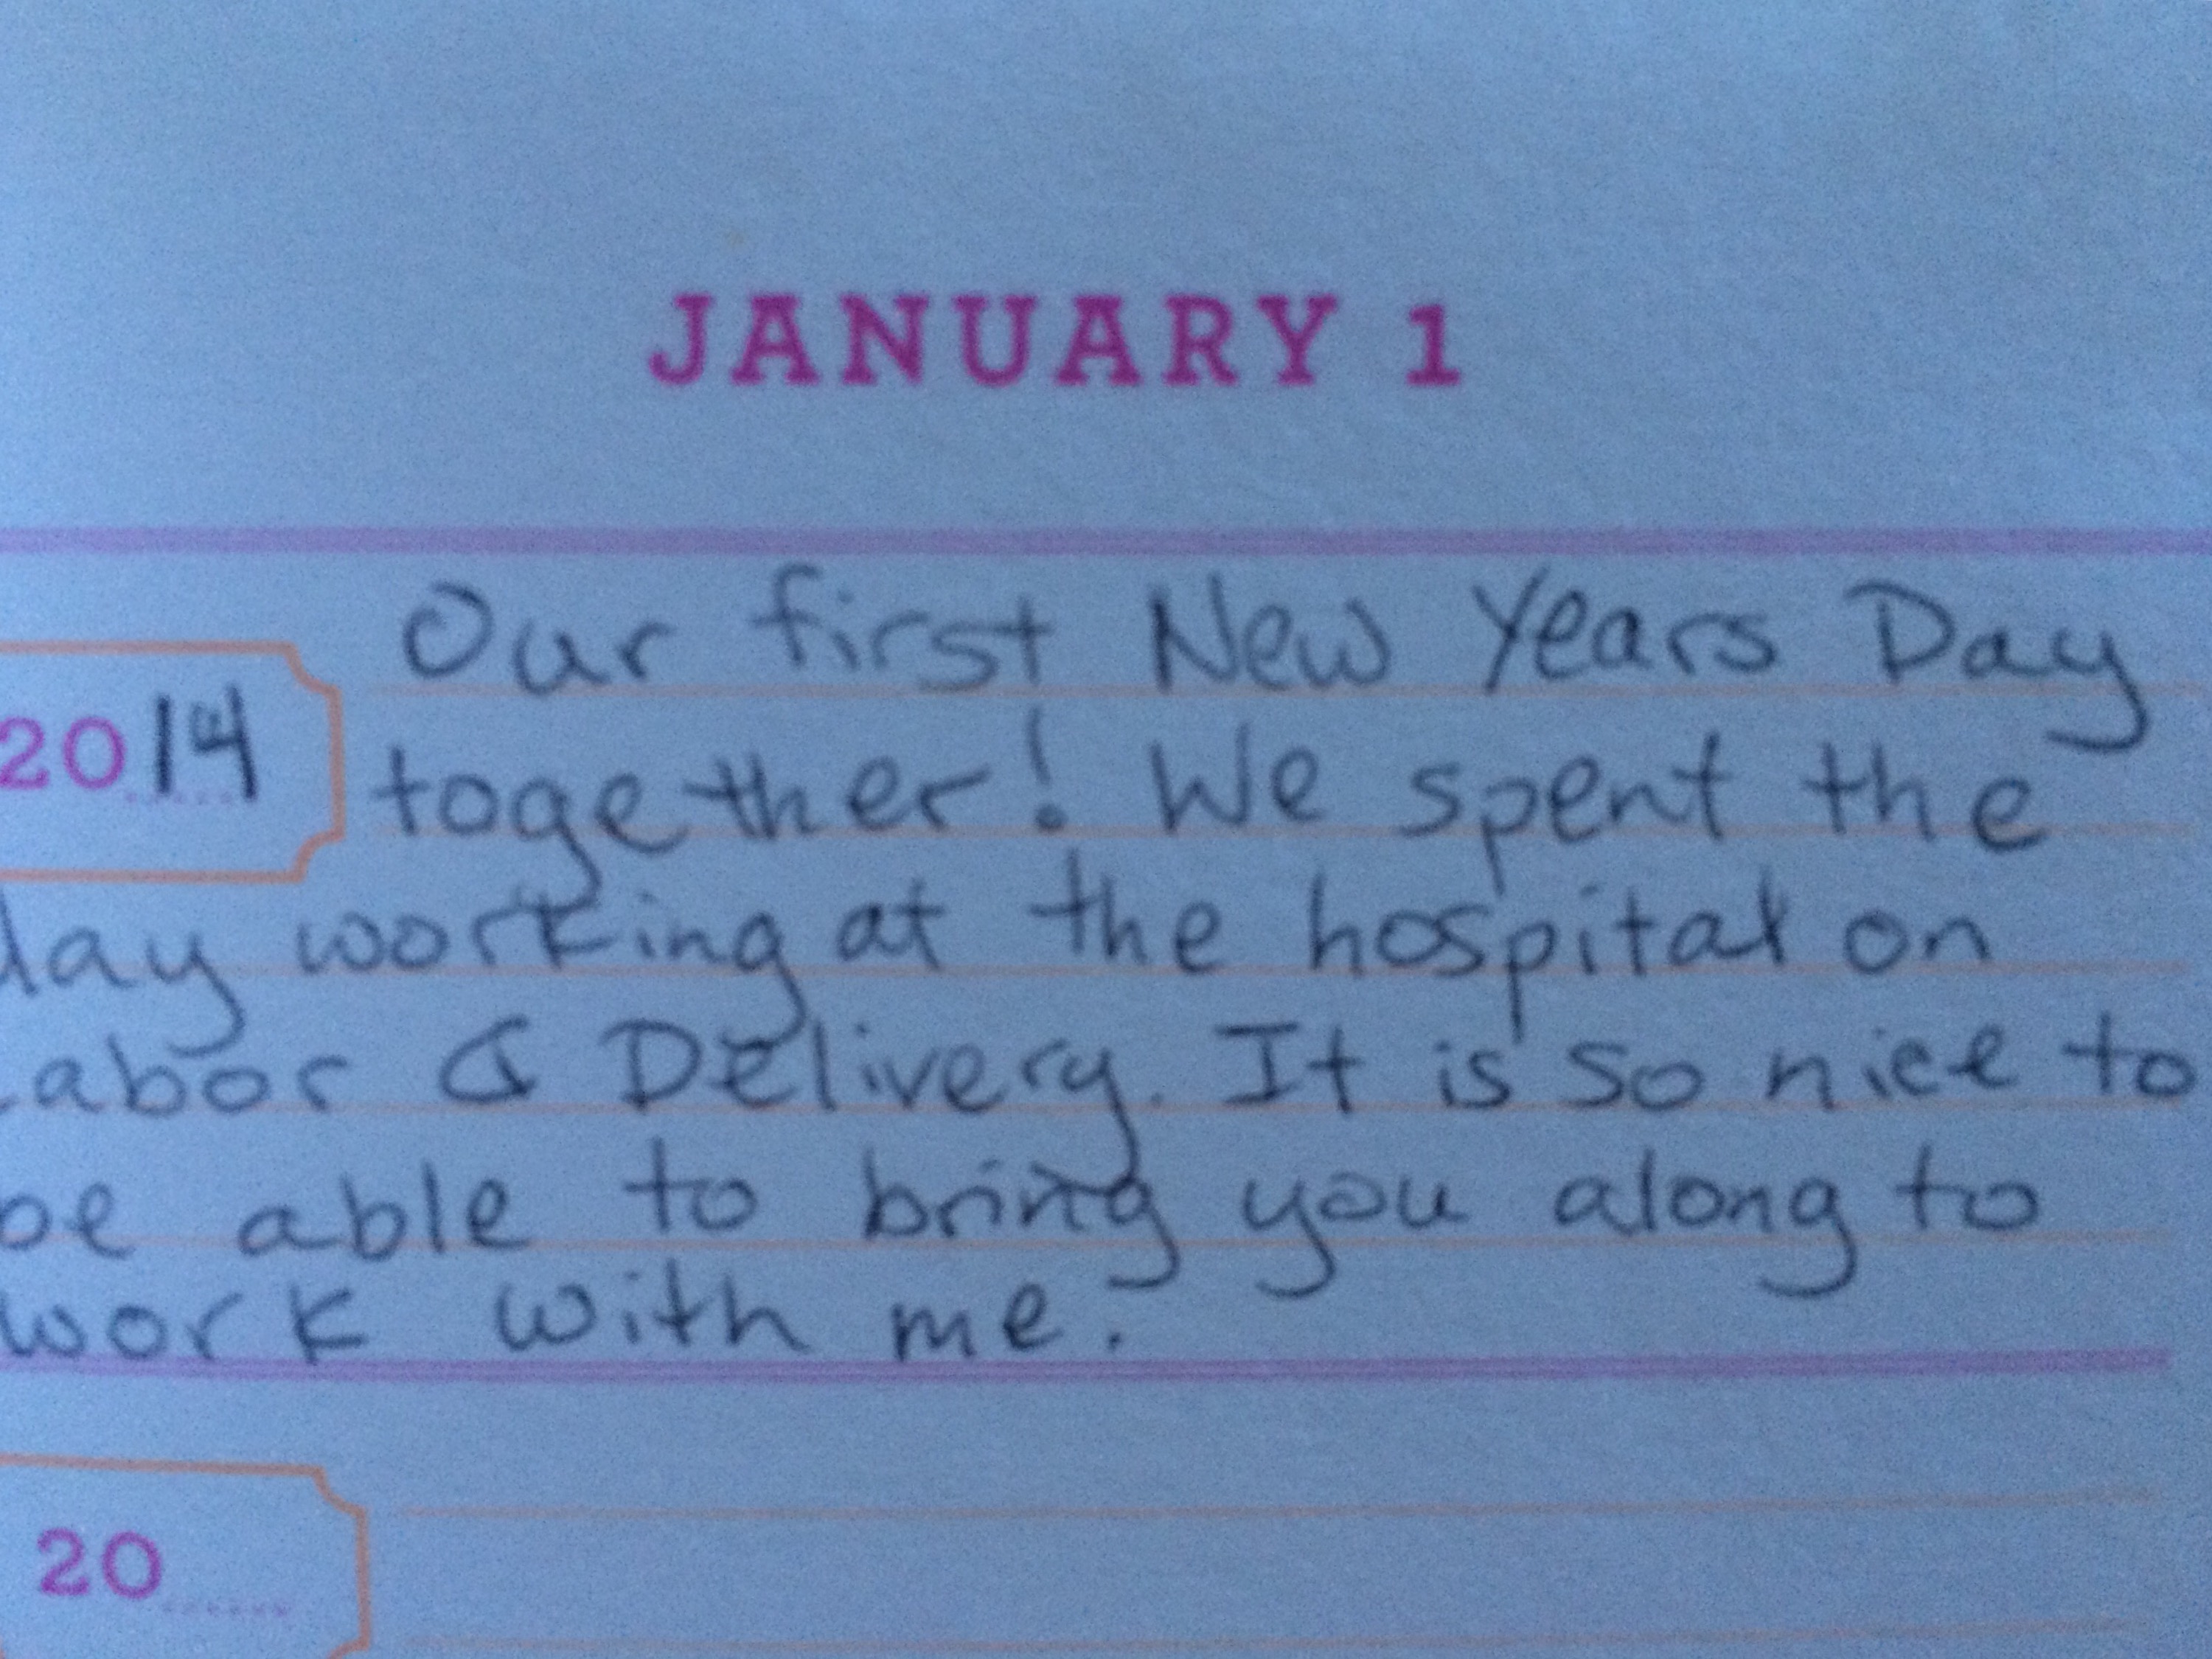 JANUARY 1
Our first New Years Day
2014
together! We spent the
day working at the hospital on
Labor & Delivery. It is so nice to
be able to bring you along to
work with me.
20